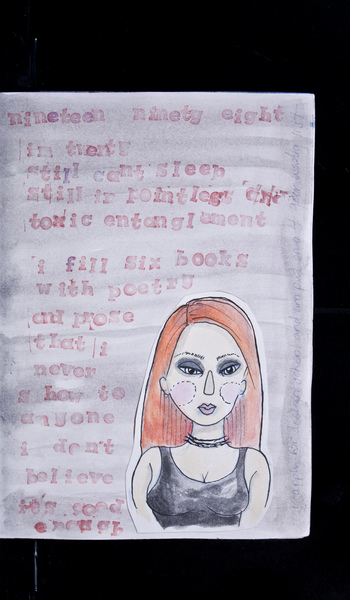 nineteen ninety eight
im twenty
still cant sleep
still in pointless
toxic entanglement
i fill six books
with poetry
and prose
that i
never
show to
anyone
i don't
believe
it's good
enough